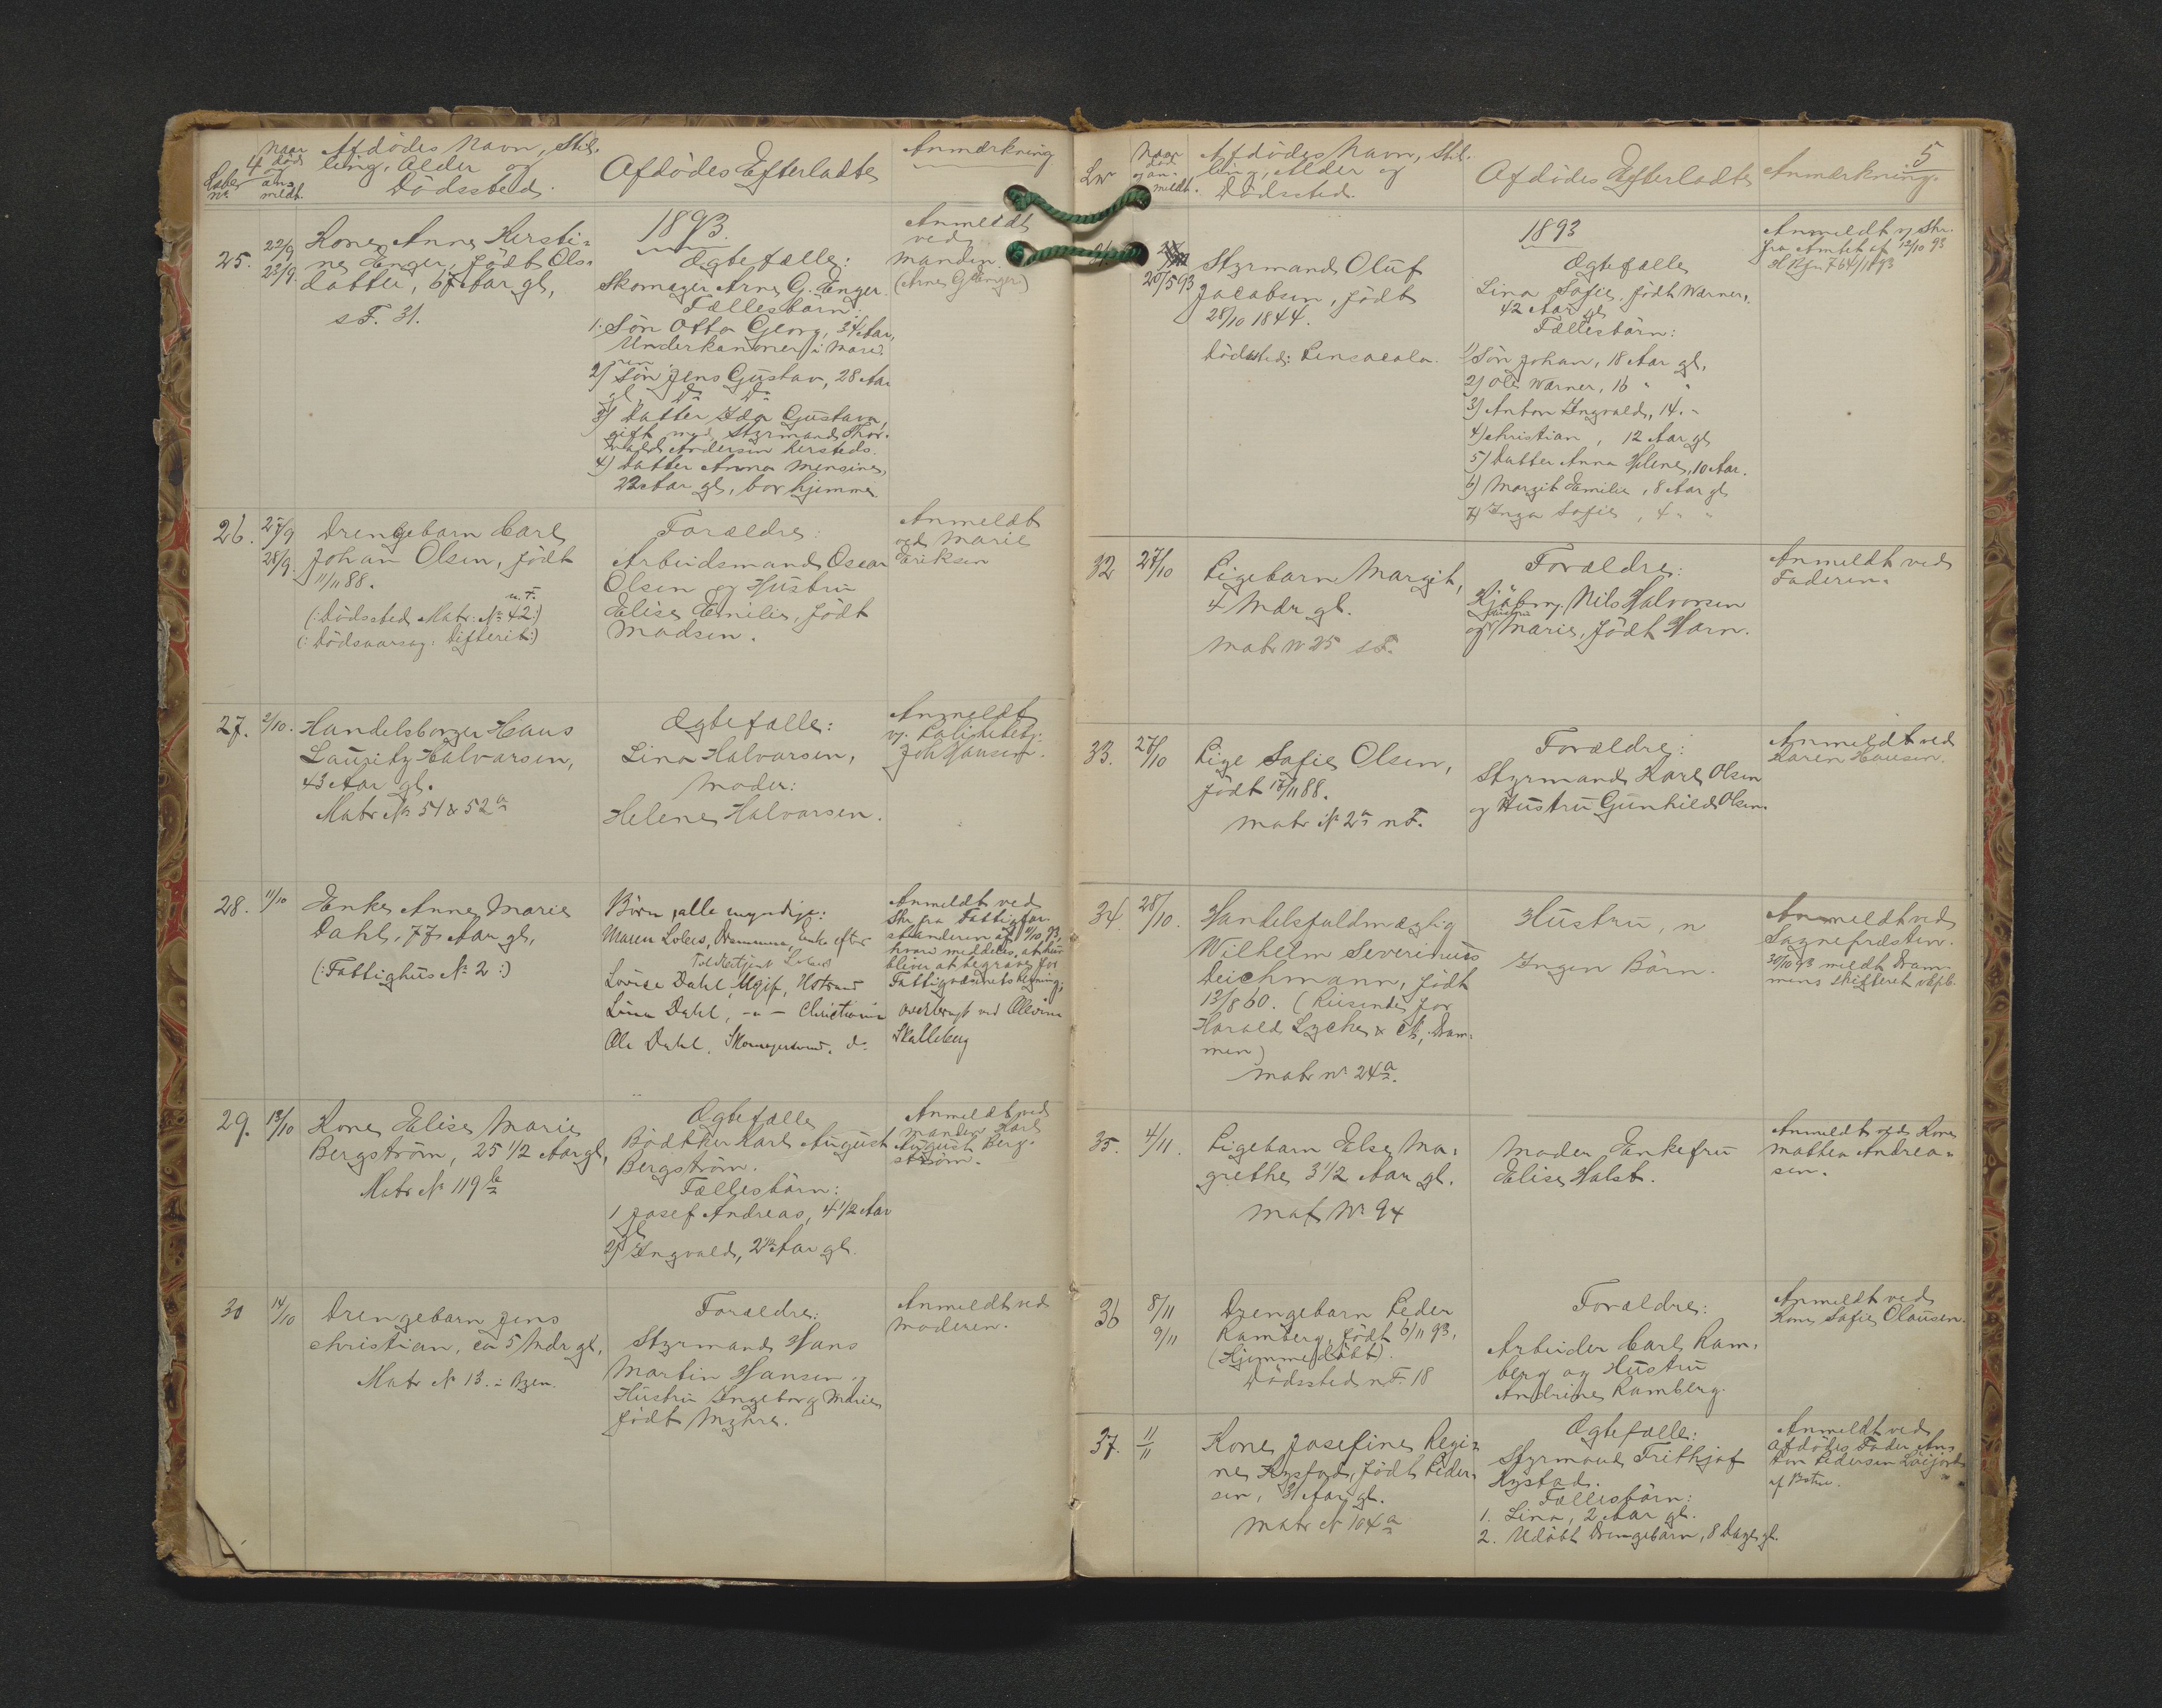 4
Löber
No
Naar
död
og
anmeldt.
Afdödes Navn, Stil-
ling, Alder og
Dödssted.
Afdödes Efterladte
Anmærkning
1893.
25.
22/9
23/9
Kone Anne Kersti=
ne Enger, född Ols=
datter, 67 Aar gl,
s F. 31.
Ægtefælle:
Skomager Arne G. Enger.
Fællesbørn:
1. Sön Otto Georg, 34 Aar,
Underkanoner i Mari=
nen
2) Sön Jens Gustav, 28 Aar
gl, Do Do
3) Datter Ida Gustava,
gift med Styrmand Thor=
vald Andersen hersteds.
4) Datter Anna Mensine,
22 Aar gl, bor hjemme
Anmeldt
ved
Manden.
(Arne G Enger)
26.
27/9
28/9
Drengebarn Carl
Johan Olsen, födt
11/11 88.
n. F.
(: Dödssted Matr: No 42:)
(: Dödsaarsag: Difterit:)
Forældre:
Arbeidsmand Oscar
Olsen og Hustru
Elise Emilie, födt
Madsen.
Anmeldt
ved Marie
Eriksen
27.
2/10.
Handelsborger Hans
Lauritz Halvorsen,
43 Aar gl.
Matr No 51 & 52 a
Ægtefælle:
Lina Halvorsen,
Moder:
Helene Halvorsen.
Anmeldt
v. Politibetj.
Joh Hansen.
28.
11/10
Enke Anne Marie
Dahl, 77 Aar gl,
(: Fattighus No 2 :)
Börn, alle myndige:
Maren Lolees, Drammen, Enke efter
Toldbetjent
Lovise Dahl, Ugift, Horten
Lina Dahl, -"- Christiania
Ole Dahl, Skomagersvend, do
Anmeldt ved
Skr fra Fattigfor-
standeren af 11/10 93,
hvori meddeles, at hun
bliver at begrave for
Fattigvæsenets Regning;
overbragt ved Elevine
Skalleberg
29.
13/10
Kone Elise Marie
Bergström, 25 1/2 Aar gl,
Matr No 119 b
Ægtefælle
Bödtker Karl August
Bergström.
Fællesbörn:
1 Josef Andreas, 4 1/2 Aar
gl
2) Ingvald, 2 1/2 Aar gl.
Anmeldt ved
Manden Karl
August Berg-
ström.
30
14/10
Drengebarn Jens
Christian, ca 5 Mdr gl,
Matr No 13. i Byen.
Forældre:
Styrmand Hans
Martin Hansen og
Hustru Ingeborg Marie,
födt Myhre.
Anmeldt ved
Moderen.
5
Lno
Naar
död
og an-
meldt.
Afdödes Navn, Stil-
ling, Alder og
Dödssted.
Afdödes Efterladte
Anmærkning.
1893
25/5 93
Styrmand Oluf
Jacobsen, födt
28/10 1844.
Dödssted: Pensacola.
Ægtefælle
Lina Sofie, födt Warner,
42 Aar gl
Fællesbörn:
1) Sön Johan, 18 Aar gl,
2) Ole Warner, 16 " "
3) Anton Ingvald, 14. "
4) Christian, 12 Aar gl
5) Datter Anna Helene, 10 Aar.
6) Margit Emilie, 8 Aar gl
7) Inga Sofie, 4 " "
Anmeldt v Skr.
fra Amtet af 12/10 93
32
27/10
Pigebarn Margit,
4 Mdr gl.
Matr No 25 s F.
Forældre:
Kjöbm. Nils Halvorsen
Hustru
og Marie, födt Horn.
Anmeldt ved
Faderen.
33.
27/10
Pige Sofie Olsen,
födt 17/11 88.
Matr No 2 a n F.
Forældre:
Styrmand Karl Olsen
og Hustru Gunhild Olsen.
Anmeldt ved
Karen Hansen.
34.
28/10.
Handelsfuldmægtig
Wilhelm Severinus
Deichmann, födt
13/8 60. (Reisende for
Harald Lyche & Co, Dram-
men)
Matr No 24 a.
Hustru,
Ingen Börn.
Anmeldt ved
Sognepræsten.
30/10 93 meldt Dram-
mens Skifteret
35.
4/11.
Pigebarn Else Ma-
grethe 3 1/2 Aar gl.
Mat No 94
Moder Enkefru
Elise Holst.
Anmeldt ved Kone
Mathea Andrea-
sen.
36
8/11
9/11
Drengebarn Peder
Ramberg, födt 6/11 93,
(Hjemmedöbt).
Dödssted n F. 18
Forældre:
Arbeider Carl Ram-
berg og Hustru
Andrine Ramberg.
Anmeldt ved
Kone Sofie Olausen.
37.
11/11
Kone Josefine Regi=
ne Rystad, födt Peder=
sen, 31 Aar gl.
Matr No 104 a
Ægtefælle:
Styrmand Frithjof
Rystad.
Fællesbörn:
1. Lina, 2 Aar gl.
2. Udöbt Drengebarn, 8 Dage gl.
Anmeldt ved
Afdödes Fader An-
ton Pedersen
af Botne.